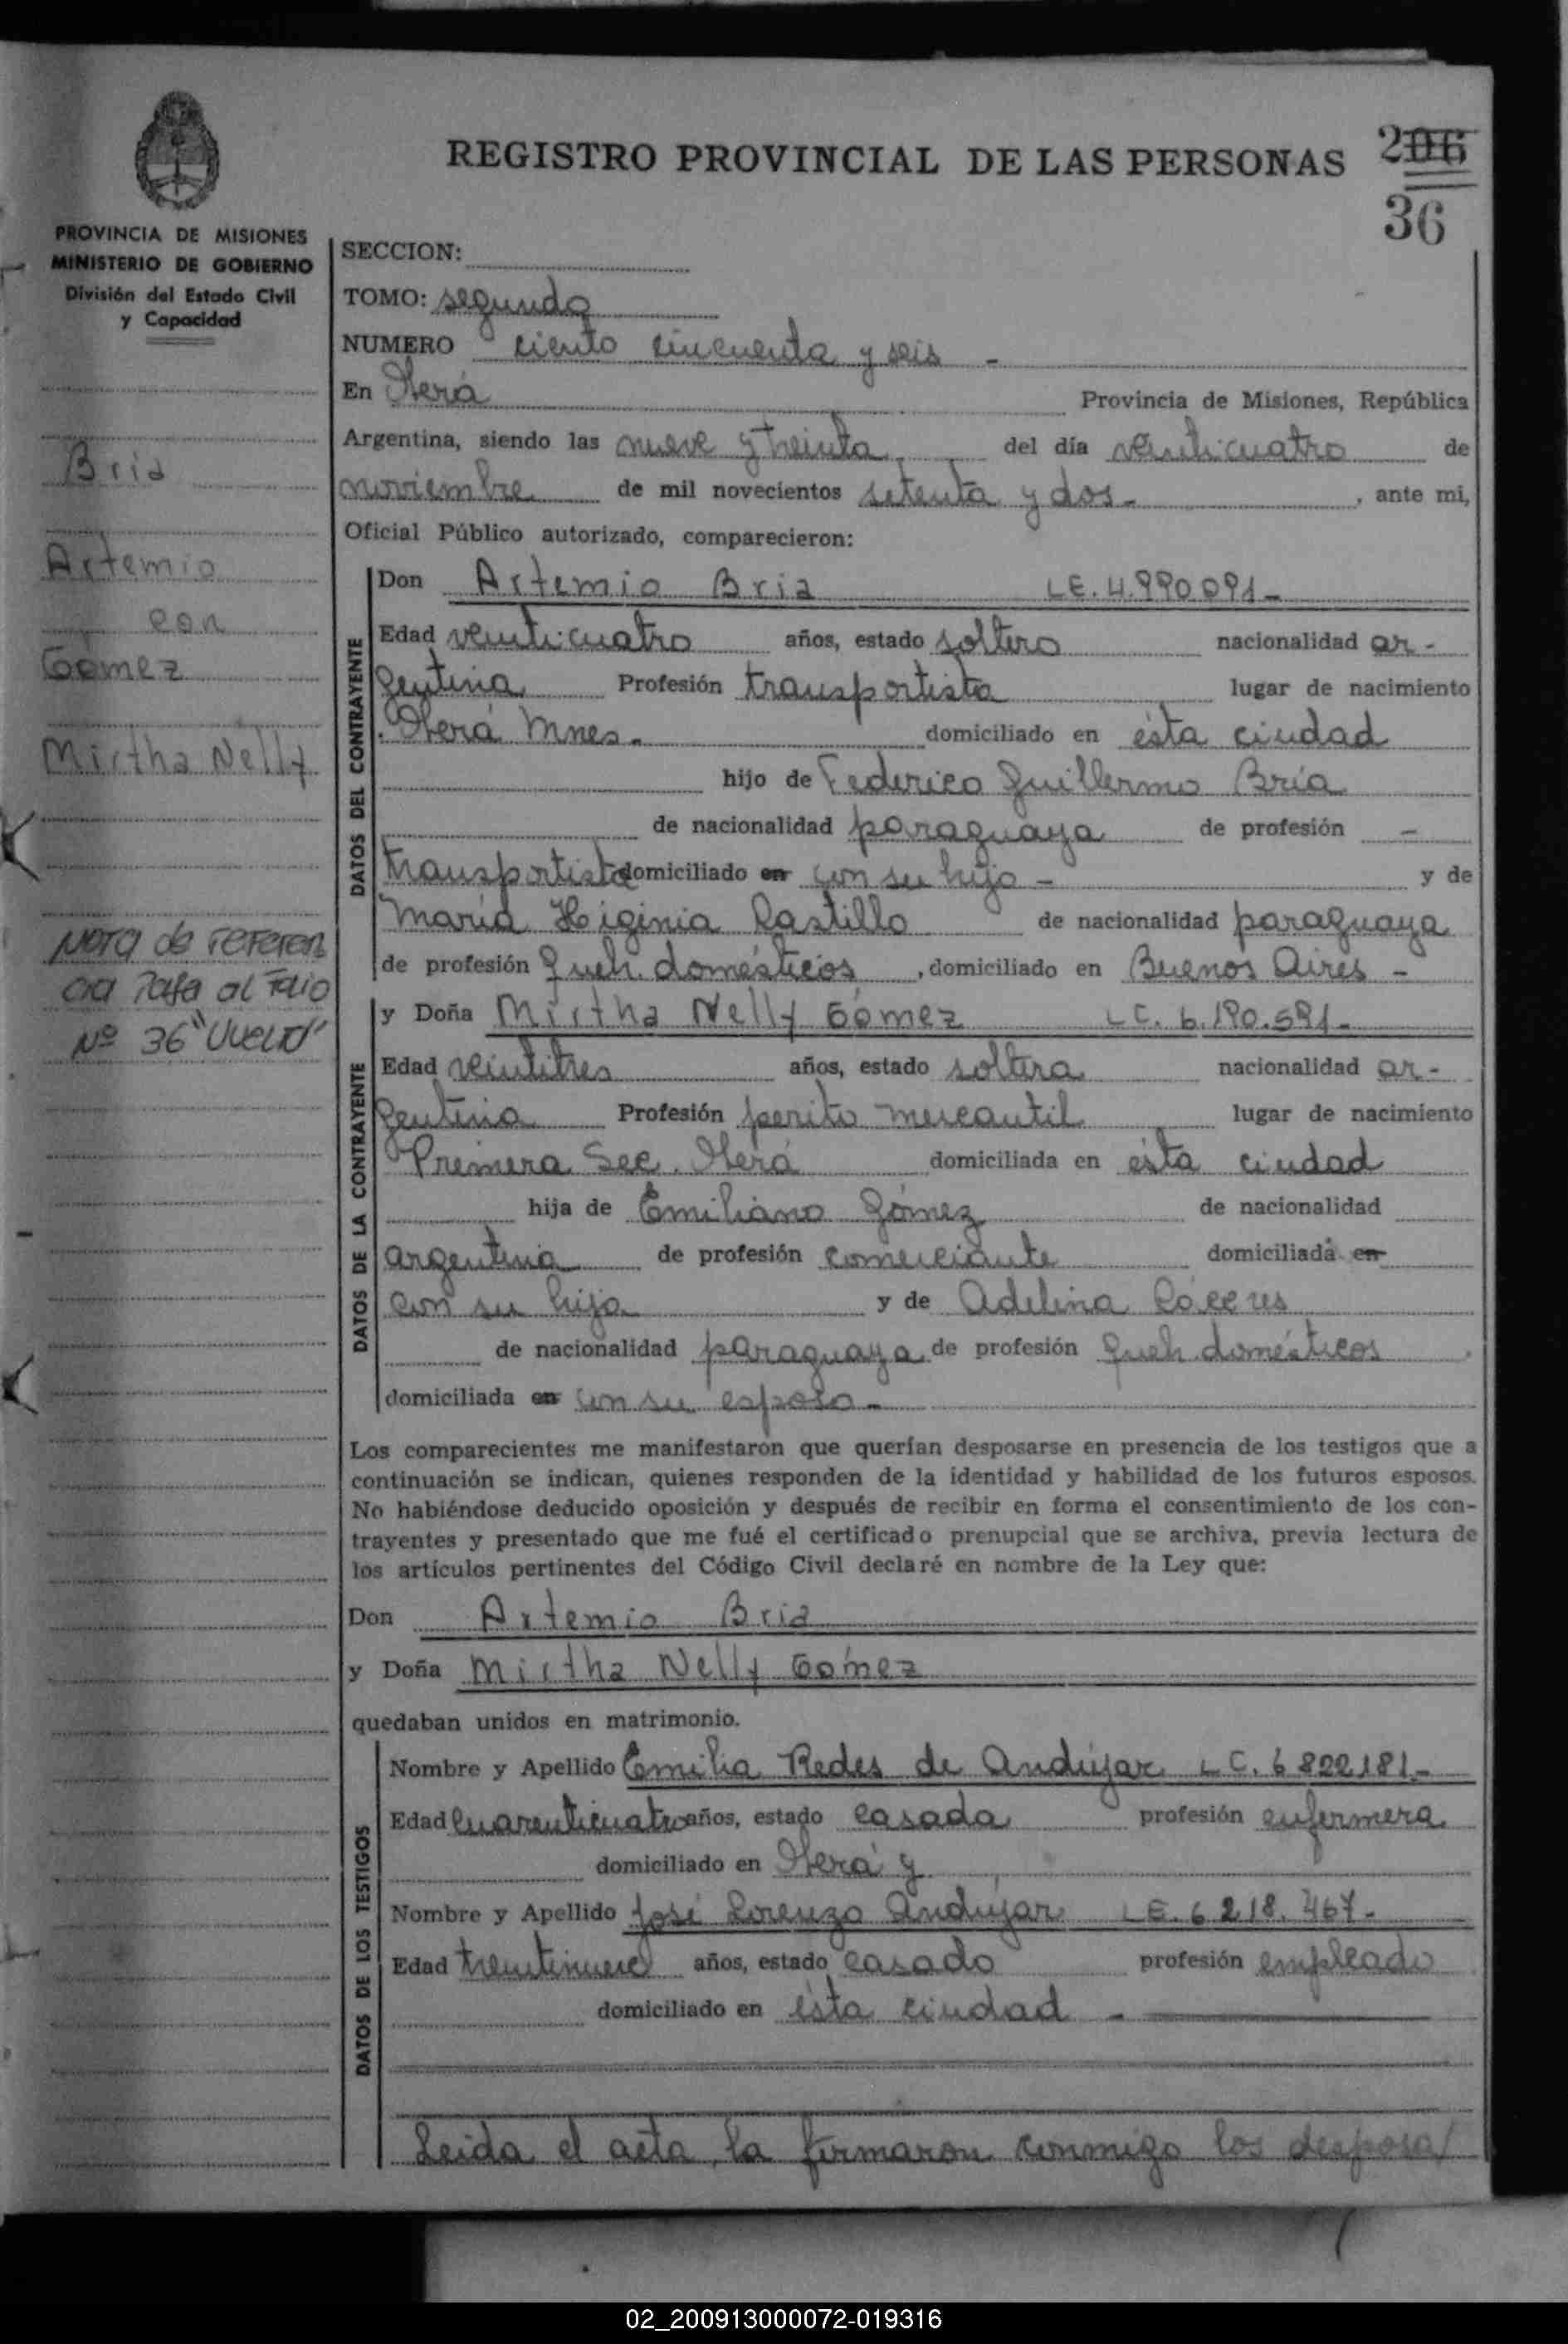 REGISTRO PROVINCIAL DE LAS PERSONAS
206
36
PROVINCIA DE MISIONES
MINISTERIO DE GOBIERNO
División del Estado Civil
y Capacidad
Bria
Artemio
con
Gómez
Mirtha Nelly
Nota de referen
cia Pasa al Folio
Nº 36 "Vuelta"
SECCION:
TOMO: segundo
NUMERO ciento cincuenta y seis -
En Oberá Provincia de Misiones, República
Argentina, siendo las nueve y treinta del día veinticuatro de
noviembre de mil novecientos setenta y dos - , ante mi,
Oficial Público autorizado, comparecieron:
DATOS DEL CONTRAYENTE
Don Artemio Bria LE. 4.990.091 -
Edad veinticuatro años, estado soltero nacionalidad ar-
gentina Profesión transportista lugar de nacimiento
Oberá Mnes. domiciliado en ésta ciudad
hijo de Federico Guillermo Bría
de nacionalidad paraguaya de profesión -
transportista domiciliado en con su hijo - y de
María Higinia Castillo de nacionalidad paraguaya
de profesión Queh. domésticos , domiciliado en Buenos Aires -
DATOS DE LA CONTRAYENTE
y Doña Mirtha Nelly Gómez LC. 6.190.591 -
Edad veintitres años, estado soltera nacionalidad ar-
gentina Profesión perito mercantil lugar de nacimiento
Primera Sec. Oberá domiciliada en ésta ciudad
hija de Emiliano Gómez de nacionalidad
argentina de profesión comerciante domiciliada en
con su hija y de Adelina Cáceres
de nacionalidad paraguaya de profesión Queh. domésticos
domiciliada en con su esposo -
Los comparecientes me manifestaron que querían desposarse en presencia de los testigos que a
continuación se indican, quienes responden de la identidad y habilidad de los futuros esposos.
No habiéndose deducido oposición y después de recibir en forma el consentimiento de los con-
trayentes y presentado que me fué el certificado prenupcial que se archiva, previa lectura de
los artículos pertinentes del Código Civil declaré en nombre de la Ley que:
Don Artemio Bria
y Doña Mirtha Nelly Gómez
quedaban unidos en matrimonio.
DATOS DE LOS TESTIGOS
Nombre y Apellido Emilia Redes de Andújar LC. 6.822.181 -
Edad cuarenticuatro años, estado casada profesión enfermera
domiciliado en Oberá y
Nombre y Apellido José Lorenzo Andújar LE. 6.218.467 -
Edad treintinueve años, estado casado profesión empleado
domiciliado en ésta ciudad -
Leida el acta, la firmaron conmigo los desposa/
02_200913000072-019316